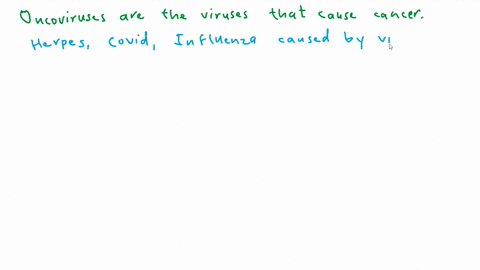 Oncoviruses are the viruses that cause cancer.
Herpes, Covid, Influenza caused by vi